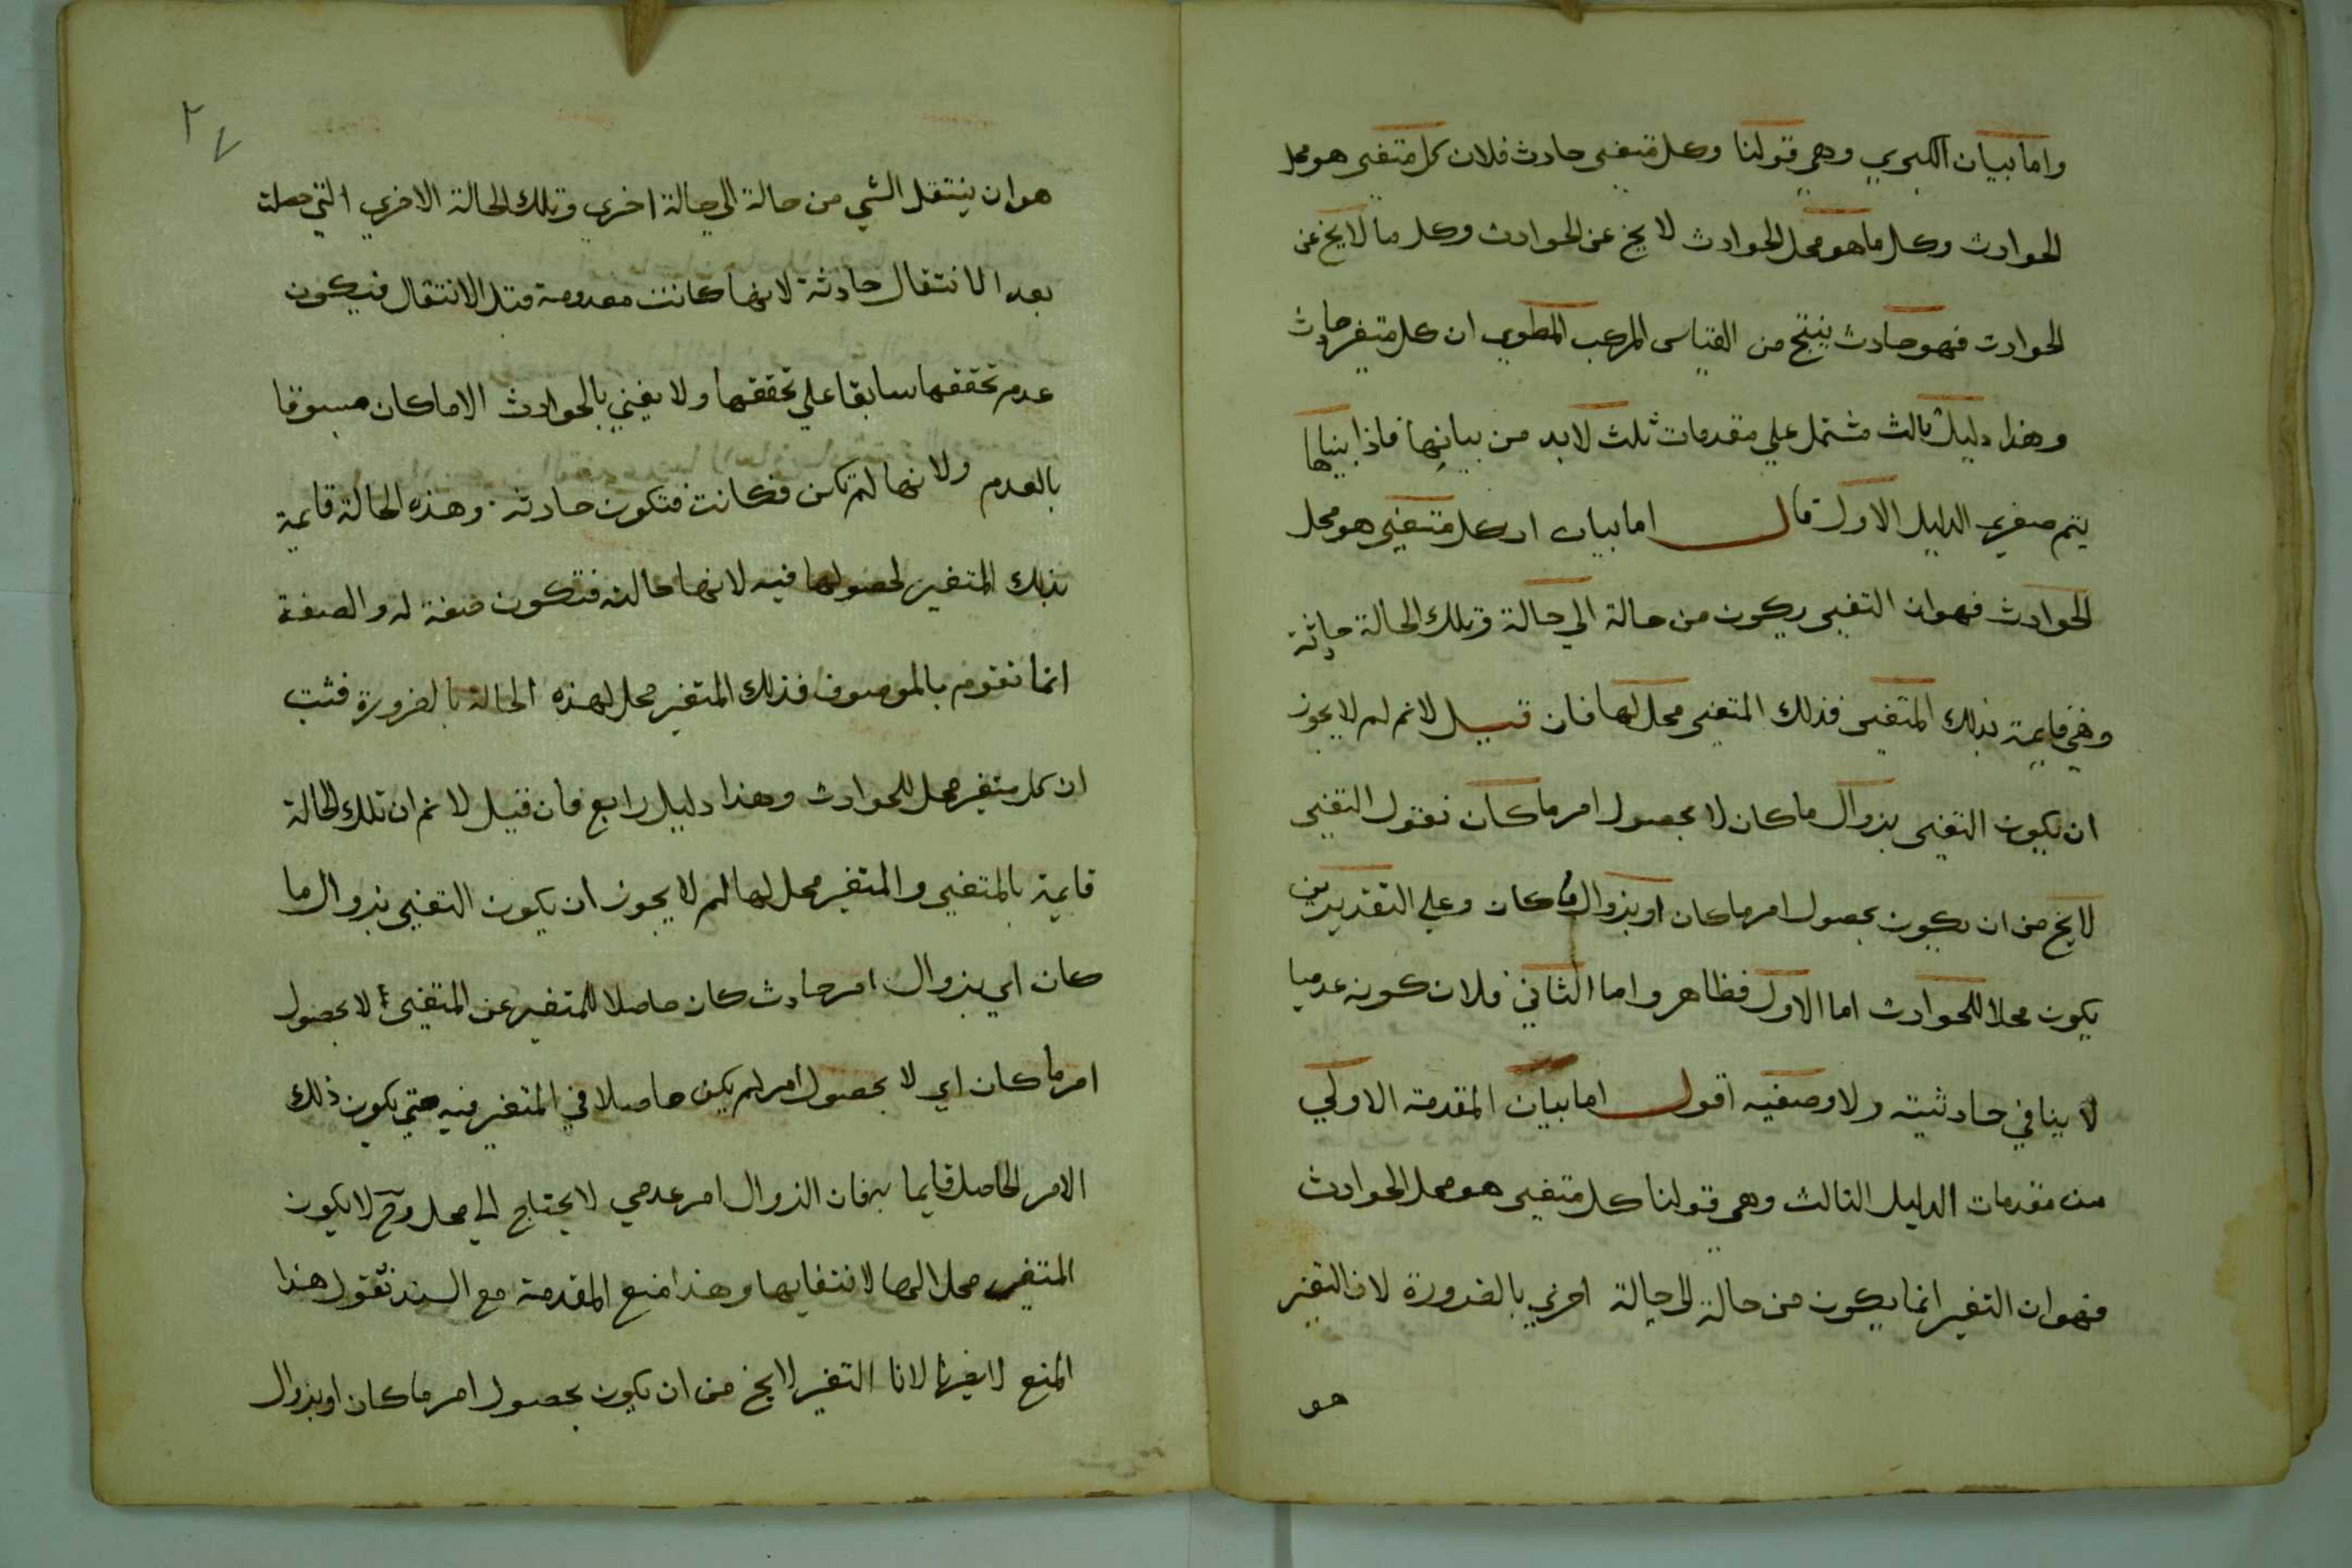 واما بيان الكبري وهي قولنا وكل متغير حادث فلان كل متغير هو محل
الحوادث وكل ما هو محل الحوادث لا يخ عن الحوادث وكل ما لا يخ عن
الحوادث فهو حادث ينتج من القياس المركب المطوي ان كل متغير حادث
وهذا دليل ثالث مشتمل علي مقدمات ثلث لابد من بيانها فاذا بيناها
يتم صغري الدليل الاول قال اما بيان ان كل متغير هو محل
الحوادث فهو ان التغير يكون من حالة الي حالة وتلك الحالة حادثة
وهي قايمة بذلك المتغير فذلك المتغير محل لها فان قيل لا نم لم لا يجوز
ان يكون التغير بزوال ما كان لا بحصول امر ما كان نقول التغير
لا يخ من ان يكون بحصول امر ما كان او بزوال ما كان وعلي التقديرين
يكون محلا للحوادث اما الاول فظاهر واما الثاني فلان كونه عدميا
لا ينافي حادثيته ولا وصفيه اقول اما بيان المقدمة الاولي
من مقدمات الدليل الثالث وهي قولنا كل متغير هو محل الحوادث
فهو ان التغير انما يكون من حالة الي حالة اخري بالضرورة لان التغير
هو
٢٧
هو ان ينتقل الشي من حالة الي حالة اخري وتلك الحالة الاخري التي حصلت
بعد الانتقال حادثة لانها كانت معدومة قبل الانتقال فيكون
عدم تحققها سابقا علي تحققها ولا يعني بالحوادث الا ما كان مسبوقا
بالعدم ولانها لم تكن فكانت فتكون حادثة وهذه الحالة قايمة
بذلك المتغير لحصولها فيه لانها حالته فتكون صفة له والصفة
انما تقوم بالموصوف فذلك المتغير محل لهذه الحالة بالضرورة فثبت
ان كل متغير محل للحوادث وهذا دليل رابع فان قيل لا نم ان تلك الحالة
قايمة بالمتغير والمتغير محل لها لم لا يجوز ان يكون التغير بزوال ما
كان اي بزوال امر حادث كان حاصلا للمتغير عن المتغير لا بحصول
امر ما كان اي لا بحصول امر لم يكن حاصلا في المتغير فيه حتي يكون ذلك
الامر الحاصل قايما به فان الزوال امر عدمي لا يحتاج الي محل وح لا يكون
المتغير محلا لها لانتفايها وهذا منع المقدمة مع السند نقول هذا
المنع لا يضرنا لانا التغير لا يخ من ان يكون بحصول امر ما كان او بزوال